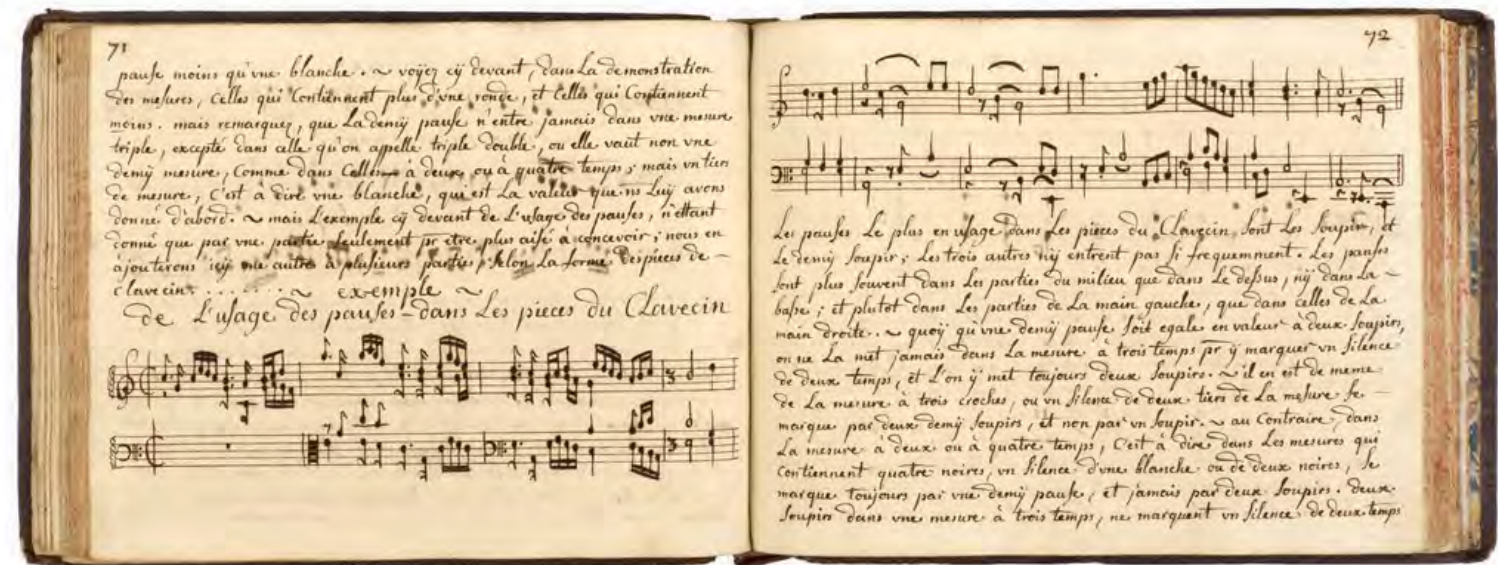 71
pause moins qu'vne blanche. ~ voÿez cÿ devant, dans La demonstration
des mesures, Celles qui Contiennent plus d'vne ronde, et Celles qui Contiennent
moins. mais remarquez, que La demÿ pause n'entre jamais dans vne mesure
triple, excepté dans celle qu'on appelle triple double, ou elle vaut non vne
demÿ mesure, Comme dans Celles à deux ou à quatre temps; mais vn tiers
de mesure, C'est à dire vne blanche, qui est La valeur que ns Luÿ avons
donné d'abord. ~ mais L'exemple cÿ devant de L'usage des pauses, n'ettant
donné que par vne partie seulement pr etre plus aisé à concevoir; nous en
ajouterons icÿ vne autre à plusieurs parties, selon La forme des pieces de –
Clavecin. . . . . . . . ~ exemple ~
de L'usage des pauses dans Les pieces du Clavecin
72
Les pauses Le plus en usage dans Les pieces du Clavecin sont Les soupir, et
Le demÿ soupir; Les trois autres n'ÿ entrent pas si frequemment. Les pauses
sont plus souvent dans Les parties du milieu que dans Le dessus, nÿ dans La –
basse; et plutot dans Les parties de La main gauche, que dans celles de La
main droite. ~ quoÿ qu'vne demÿ pause soit egale en valeur à deux soupirs,
on ne La met jamais dans La mesure à trois temps pr ÿ marquer vn silence
de deux temps, et L'on ÿ met toujours deux soupirs. ~ il en est de meme
de La mesure à trois croches, ou vn silence de deux tiers de La mesure se –
marque par deux demÿ soupirs, et non par vn soupir. ~ au Contraire, dans
La mesure à deux ou à quatre temps, C'est à dire dans Les mesures qui
Contiennent quatre noires, vn silence d'vne blanche ou de deux noires, se
marque toujours par vne demÿ pause, et jamais par deux soupirs. deux
soupirs dans vne mesure à trois temps, ne marquent vn silence de deux temps